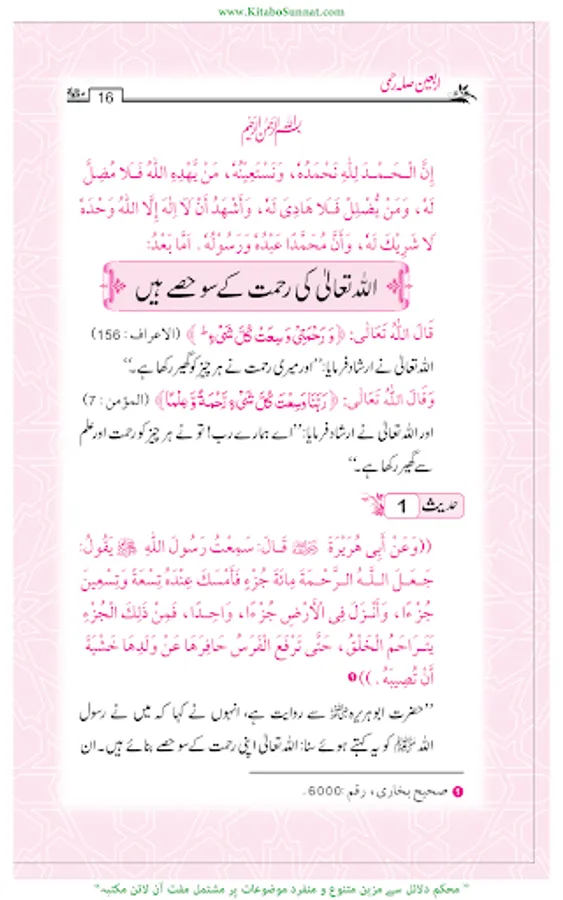 www.KitaboSunnat.com
اربعین صلہ رحمی
16
بسم اللہ الرحمن الرحیم
إِنَّ الْـحَـمْـدَ لِلّٰهِ نَحْمَدُهٗ، وَنَسْتَعِيْنُهٗ، مَنْ يَّهْدِهِ اللّٰهُ فَـلَا مُضِلَّ
لَهٗ، وَمَنْ يُّضْلِلْ فَـلَا هَادِيَ لَهٗ، وَأَشْهَدُ أَنْ لَّا إِلٰهَ إِلَّا اللّٰهُ وَحْدَهٗ
لَا شَرِيْكَ لَهٗ، وَأَنَّ مُحَمَّدًا عَبْدُهٗ وَرَسُوْلُهٗ. اَمَّا بَعْدُ:
اللہ تعالیٰ کی رحمت کے سو حصے ہیں
قَالَ اللّٰهُ تَعَالٰى: ﴿وَرَحْمَتِيْ وَسِعَتْ كُلَّ شَيْءٍ ؕ﴾ (الاعراف:156)
اللہ تعالیٰ نے ارشاد فرمایا: ’’اور میری رحمت نے ہر چیز کو گھیر رکھا ہے۔‘‘
وَقَالَ اللّٰهُ تَعَالٰى: ﴿رَبَّنَا وَسِعْتَ كُلَّ شَيْءٍ رَّحْمَةً وَّعِلْمًا﴾ (المؤمن:7)
اور اللہ تعالیٰ نے ارشاد فرمایا: ’’اے ہمارے رب! تو نے ہر چیز کو رحمت اور علم
سے گھیر رکھا ہے۔‘‘
حدیث 1
((وَعَنْ أَبِى هُرَيْرَةَ ﷜ قَالَ: سَمِعْتُ رَسُولَ اللّٰهِ ﷺ يَقُولُ:
جَـعَـلَ الـلّٰـهُ الـرَّحْـمَـةَ مِائَةَ جُزْءٍ فَأَمْسَكَ عِنْدَهُ تِسْعَةً وَتِسْعِينَ
جُزْءًا، وَأَنْـزَلَ فِى الْأَرْضِ جُزْءًا، وَاحِـدًا، فَمِنْ ذٰلِكَ الْجُزْءِ
يَتَـرَاحَمُ الْخَلْقُ، حَتّٰى تَرْفَعَ الْفَرَسُ حَافِرَهَا عَنْ وَلَدِهَا خَشْيَةَ
أَنْ تُصِيبَهُ.)) ❶
’’حضرت ابو ہریرہ ﷜ سے روایت ہے، انہوں نے کہا کہ میں نے رسول
اللہ ﷺ کو یہ کہتے ہوئے سنا: اللہ تعالیٰ اپنی رحمت کے سو حصے بنائے ہیں۔ ان
❶ صحیح بخاری، رقم:6000.
"محکم دلائل سے مزین متنوع و منفرد موضوعات پر مشتمل مفت آن لائن مکتبہ"